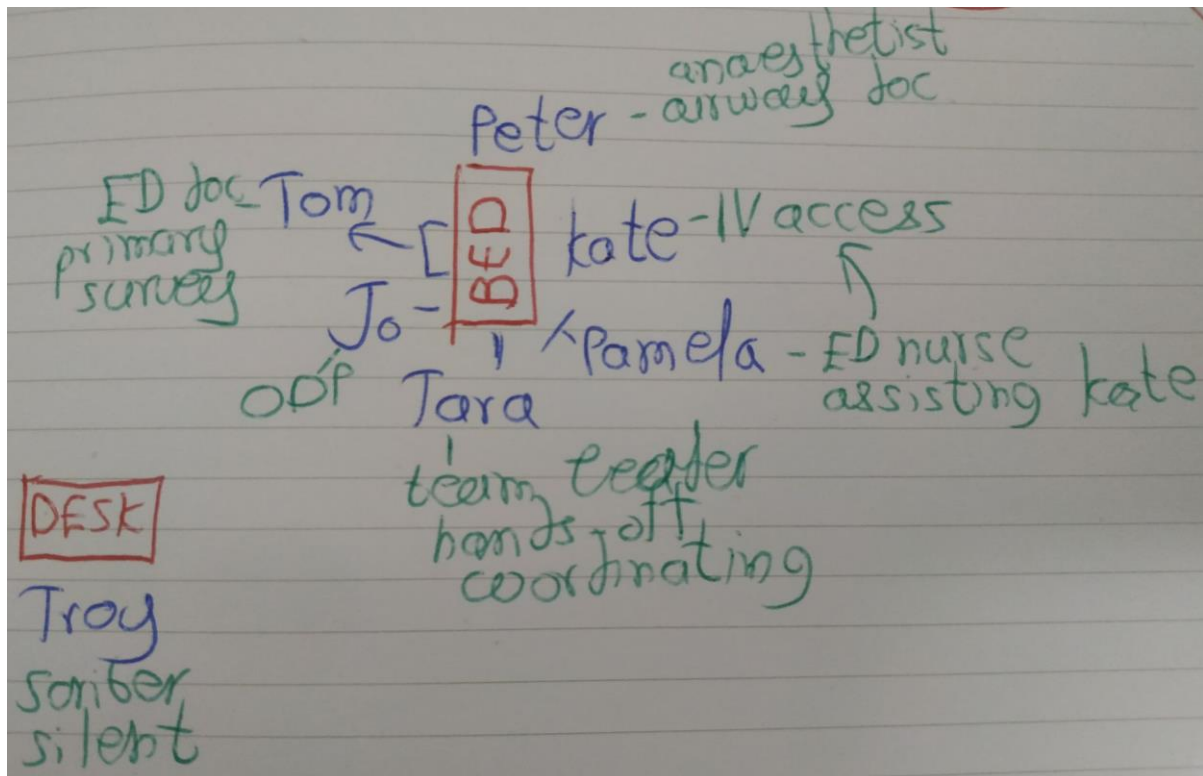 anaesthetist
Peter - airway doc
ED doc - Tom
primary
survey
BED
Kate - IV access
Jo -
ODP
Pamela - ED nurse
assisting Kate
Tara
team leader
hands-off,
coordinating
DESK
Troy
scriber
silent